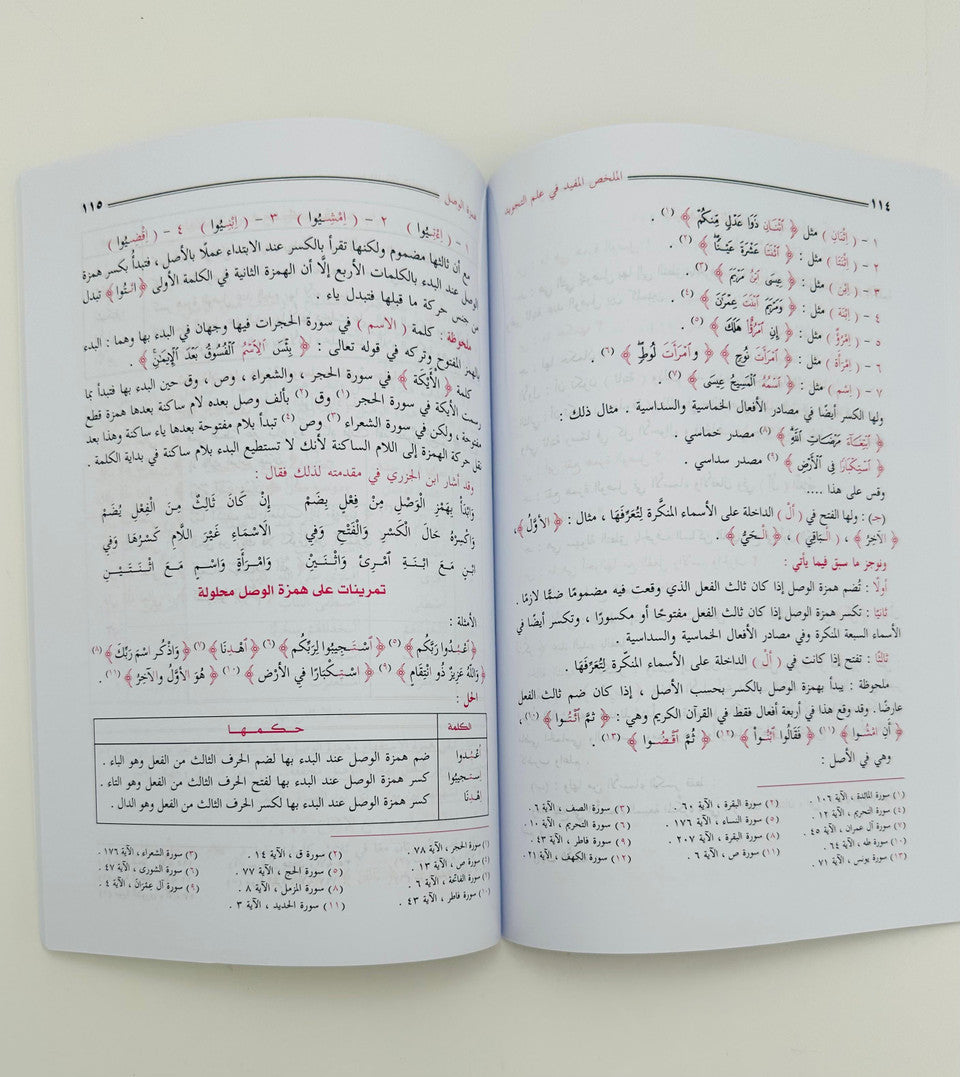 ١١٤ الملخص المفيد في علم التجويد
١ - ( اِثْنَان ) مثل ﴿ ٱثْنَانِ ذَوَا عَدْلٍ مِّنكُمْ ﴾ (١) .
٢ - ( اِثْنَتَا ) مثل : ﴿ ٱثْنَتَا عَشْرَةَ عَيْنًا ﴾ (٢) .
٣ - ( اِبْن ) مثل : ﴿ عِيسَى ٱبْنُ مَرْيَمَ ﴾ (٣) .
٤ - ( اِبْنَة ) مثل : ﴿ وَمَرْيَمَ ٱبْنَتَ عِمْرَٰنَ ﴾ (٤) .
٥ - ( اِمْرُؤٌ ) مثل : ﴿ إِنِ ٱمْرُؤٌا۟ هَلَكَ ﴾ (٥) .
٦ - ( اِمْرَأَة ) مثل : ﴿ ٱمْرَأَتَ نُوحٍ ﴾ ﴿ وَٱمْرَأَتَ لُوطٍ ﴾ (٦) .
٧ - ( اِسْم ) مثل : ﴿ ٱسْمُهُ ٱلْمَسِيحُ عِيسَى ﴾ (٧) .
ولها الكسر أيضًا في مصادر الأفعال الخماسية والسداسية . مثال ذلك :
﴿ ٱبْتِغَآءَ مَرْضَاتِ ٱللَّهِ ﴾ (٨) مصدر خماسي .
﴿ ٱسْتِكْبَارًا فِي ٱلْأَرْضِ ﴾ (٩) مصدر سداسي .
وقس على هذا ....
(جـ) : ولها الفتح في ( أَلْ ) الداخلة على الأسماء المنكَّرة لِتُعَرِّفَهَا ، مثال : ﴿ الأَوَّلُ ﴾ ،
﴿ الآخِرُ ﴾ ، ﴿ الْبَاقِي ﴾ ، ﴿ الْحَيُّ ﴾ .
ونوجز ما سبق فيما يأتي :
أولًا : تُضم همزة الوصل إذا كان ثالث الفعل الذي وقعت فيه مضمومًا ضمًّا لازمًا .
ثانيًا : تكسر همزة الوصل إذا كان ثالث الفعل مفتوحًا أو مكسورًا ، وتكسر أيضًا في
الأسماء السبعة المنكرة وفي مصادر الأفعال الخماسية والسداسية .
ثالثًا : تفتح إذا كانت في ( أَلْ ) الداخلة على الأسماء المنكّرة لِتُعَرِّفَهَا .
ملحوظة : يبدأ بهمزة الوصل بالكسر بحسب الأصل ، إذا كان ضم ثالث الفعل
عارضًا . وقد وقع هذا في أربعة أفعال فقط في القرآن الكريم وهي : ﴿ ثُمَّ ٱئْتُوا ﴾ (١٠) ،
﴿ أَنِ ٱمْشُوا ﴾ (١١) ﴿ فَقَالُوا ٱبْنُوا ﴾ (١٢) ﴿ ثُمَّ ٱقْضُوا ﴾ (١٣) .
وهي في الأصل :
(١) سورة المائدة ، الآية ١٠٦ . (٢) سورة البقرة ، الآية ٦٠ . (٣) سورة الصف ، الآية ٦ .
(٤) سورة التحريم ، الآية ١٢ . (٥) سورة النساء ، الآية ١٧٦ . (٦) سورة التحريم ، الآية ١٠ .
(٧) سورة آل عمران ، الآية ٤٥ . (٨) سورة البقرة ، الآية ٢٠٧ . (٩) سورة فاطر ، الآية ٤٣ .
(١٠) سورة طه ، الآية ٦٤ . (١١) سورة ص ، الآية ٦ . (١٢) سورة الكهف ، الآية ٢١ .
(١٣) سورة يونس ، الآية ٧١ .
همزة الوصل ١١٥
١ - ( اِئْتِيُوا ) ٢ - ( اِمْشِيُوا ) ٣ - ( اِبْنِيُوا ) ٤ - ( اِقْضِيُوا )
مع أن ثالثها مضموم ولكنها تقرأ بالكسر عند الابتداء عملًا بالأصل ، فتبدأ بكسر همزة
الوصل عند البدء بالكلمات الأربع إلَّا أن الهمزة الثانية في الكلمة الأولى ﴿ ائْتُوا ﴾ تبدل
من جنس حركة ما قبلها فتبدل ياء .
ملحوظة : كلمة ( الاسم ) في سورة الحجرات فيها وجهان في البدء بها وهما : البدء
بالهمز المفتوح وتركه في قوله تعالى : ﴿ بِئْسَ ٱلِٱسْمُ ٱلْفُسُوقُ بَعْدَ ٱلْإِيمَٰنِ ﴾ .
كلمة ﴿ الأَيْكَة ﴾ في سورة الحجر ، والشعراء ، وص ، وق حين البدء بها فتبدأ بما
رسمت الأيكة في سورة الحجر (١) وق (٢) بألف وصل بعده لام ساكنة بعدها همزة قطع
مفتوحة ، ولكن في سورة الشعراء (٣) وص (٤) تبدأ بلام مفتوحة بعدها ياء ساكنة وهذا بعد
نقل حركة الهمزة إلى اللام الساكنة لأنك لا تستطيع البدء بلام ساكنة في بداية الكلمة .
وقد أشار ابن الجزري في مقدمته لذلك فقال :
وَابْدَأْ بِهَمْزِ الْوَصْلِ مِنْ فِعْلٍ بِضَمْ إِنْ كَانَ ثَالِثٌ مِنَ الْفِعْلِ يُضَمْ
وَاكْسِرْهُ حَالَ الْكَسْرِ وَالْفَتْحِ وَفِي الاسْمَاءِ غَيْرَ اللَّامِ كَسْرُهَا وَفِي
ابْنٍ مَعَ ابْنَةِ امْرِئٍ وَاثْنَيْنِ وَامْرَأَةٍ وَاسْمٍ مَعَ اثْنَتَيْنِ
تمرينات على همزة الوصل محلولة
الأمثلة :
﴿ ٱعْبُدُوا رَبَّكُمْ ﴾ (٥) ﴿ ٱسْتَجِيبُوا لِرَبِّكُم ﴾ (٦) ﴿ ٱهْدِنَا ﴾ (٧) ﴿ وَاذْكُرِ اسْمَ رَبِّكَ ﴾ (٨)
﴿ وَاللَّهُ عَزِيزٌ ذُو انْتِقَامٍ ﴾ (٩) ﴿ اسْتِكْبَارًا فِي الأَرْضِ ﴾ (١٠) ﴿ هُوَ الأَوَّلُ وَالآخِرُ ﴾ (١١) .
الحل :
الكلمة حكمها
اُعْبُدوا ضم همزة الوصل عند البدء بها لضم الحرف الثالث من الفعل وهو الباء .
اِسْتَجِيبُوا كسر همزة الوصل عند البدء بها لفتح الحرف الثالث من الفعل وهو التاء .
اِهْدِنَا كسر همزة الوصل عند البدء بها لكسر الحرف الثالث من الفعل وهو الدال .
(١) سورة الحجر ، الآية ٧٨ . (٢) سورة ق ، الآية ١٤ . (٣) سورة الشعراء ، الآية ١٧٦ .
(٤) سورة ص ، الآية ١٣ . (٥) سورة الحج ، الآية ٧٧ . (٦) سورة الشورى ، الآية ٤٧ .
(٧) سورة الفاتحة ، الآية ٦ . (٨) سورة المزمل ، الآية ٨ . (٩) سورة آل عِمْرَانَ ، الآية ٤ .
(١٠) سورة فاطر ، الآية ٤٣ . (١١) سورة الحديد ، الآية ٣ .